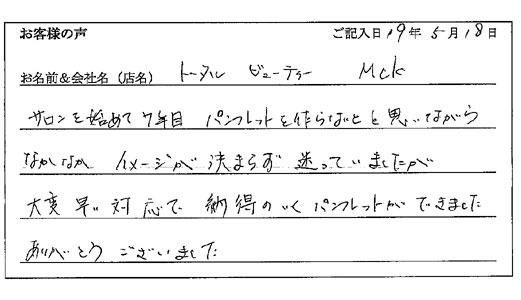 お客様の声 ご記入日 19年 5月 18日
お名前＆会社名（店名） トータル ビューティー MCK
サロンを始めて7年目 パンフレットを作らねばと思いながら
なかなか イメージが 決まらず 迷っていましたが
大変 早い 対応で 納得のいくパンフレットができました
ありがとう ございました